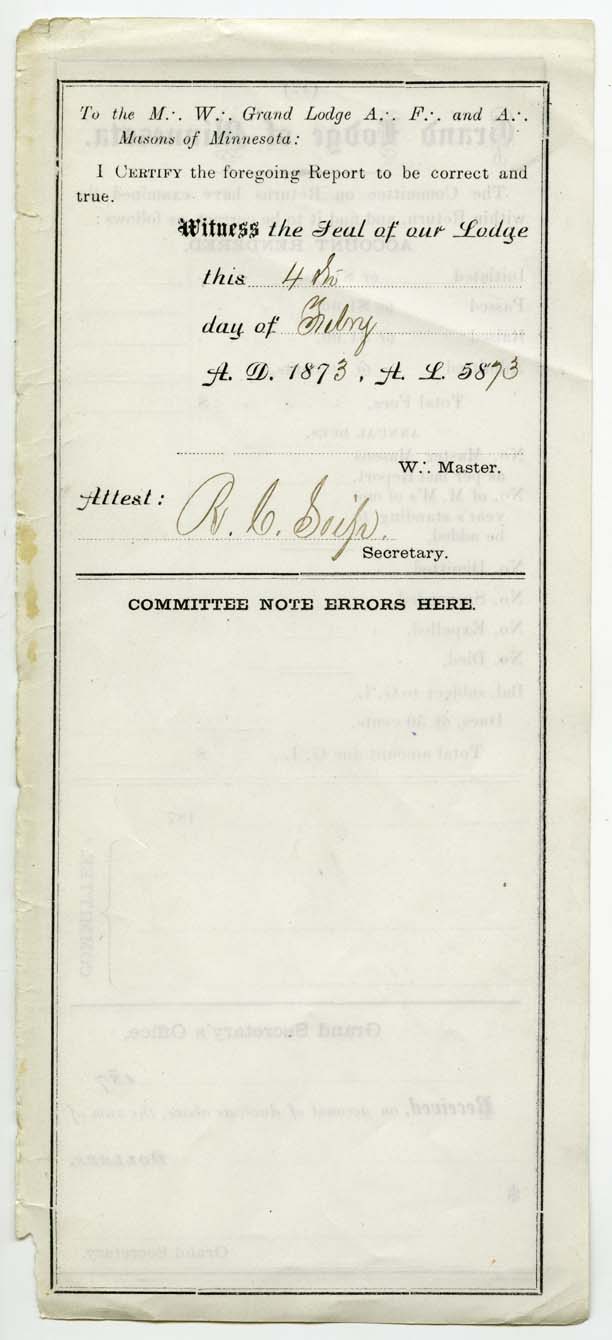 To the M∴ W∴ Grand Lodge A∴ F∴ and A∴
Masons of Minnesota:
I CERTIFY the foregoing Report to be correct and
true.
Witness the Seal of our Lodge
this 4th
day of Febry
A. D. 1873, A. L. 5873
W∴ Master.
Attest: R. C.
Secretary.
COMMITTEE NOTE ERRORS HERE.